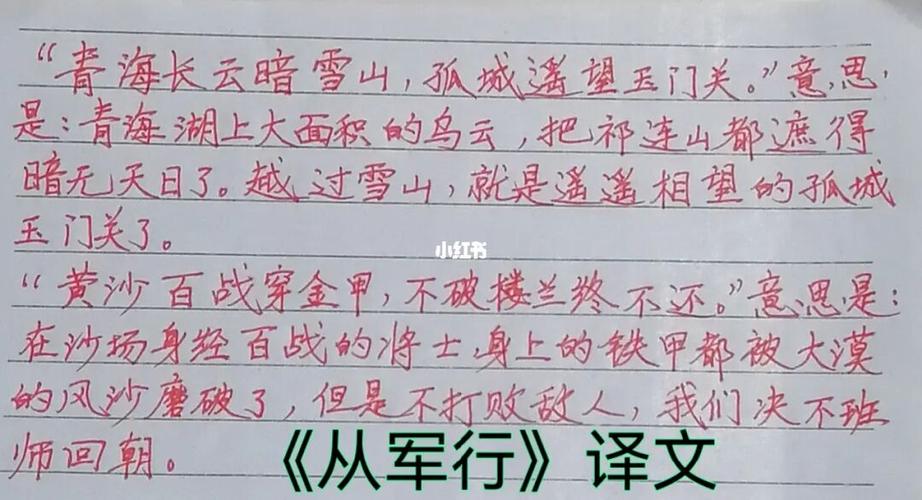 “青海长云暗雪山，孤城遥望玉门关。”意思
是：青海湖上大面积的乌云，把祁连山都遮得
暗无天日了。越过雪山，就是遥遥相望的孤城
玉门关了。
小红书
“黄沙百战穿金甲，不破楼兰终不还。”意思是：
在沙场身经百战的将士，身上的铁甲都被大漠
的风沙磨破了，但是不打败敌人，我们决不班
师回朝。
《从军行》译文